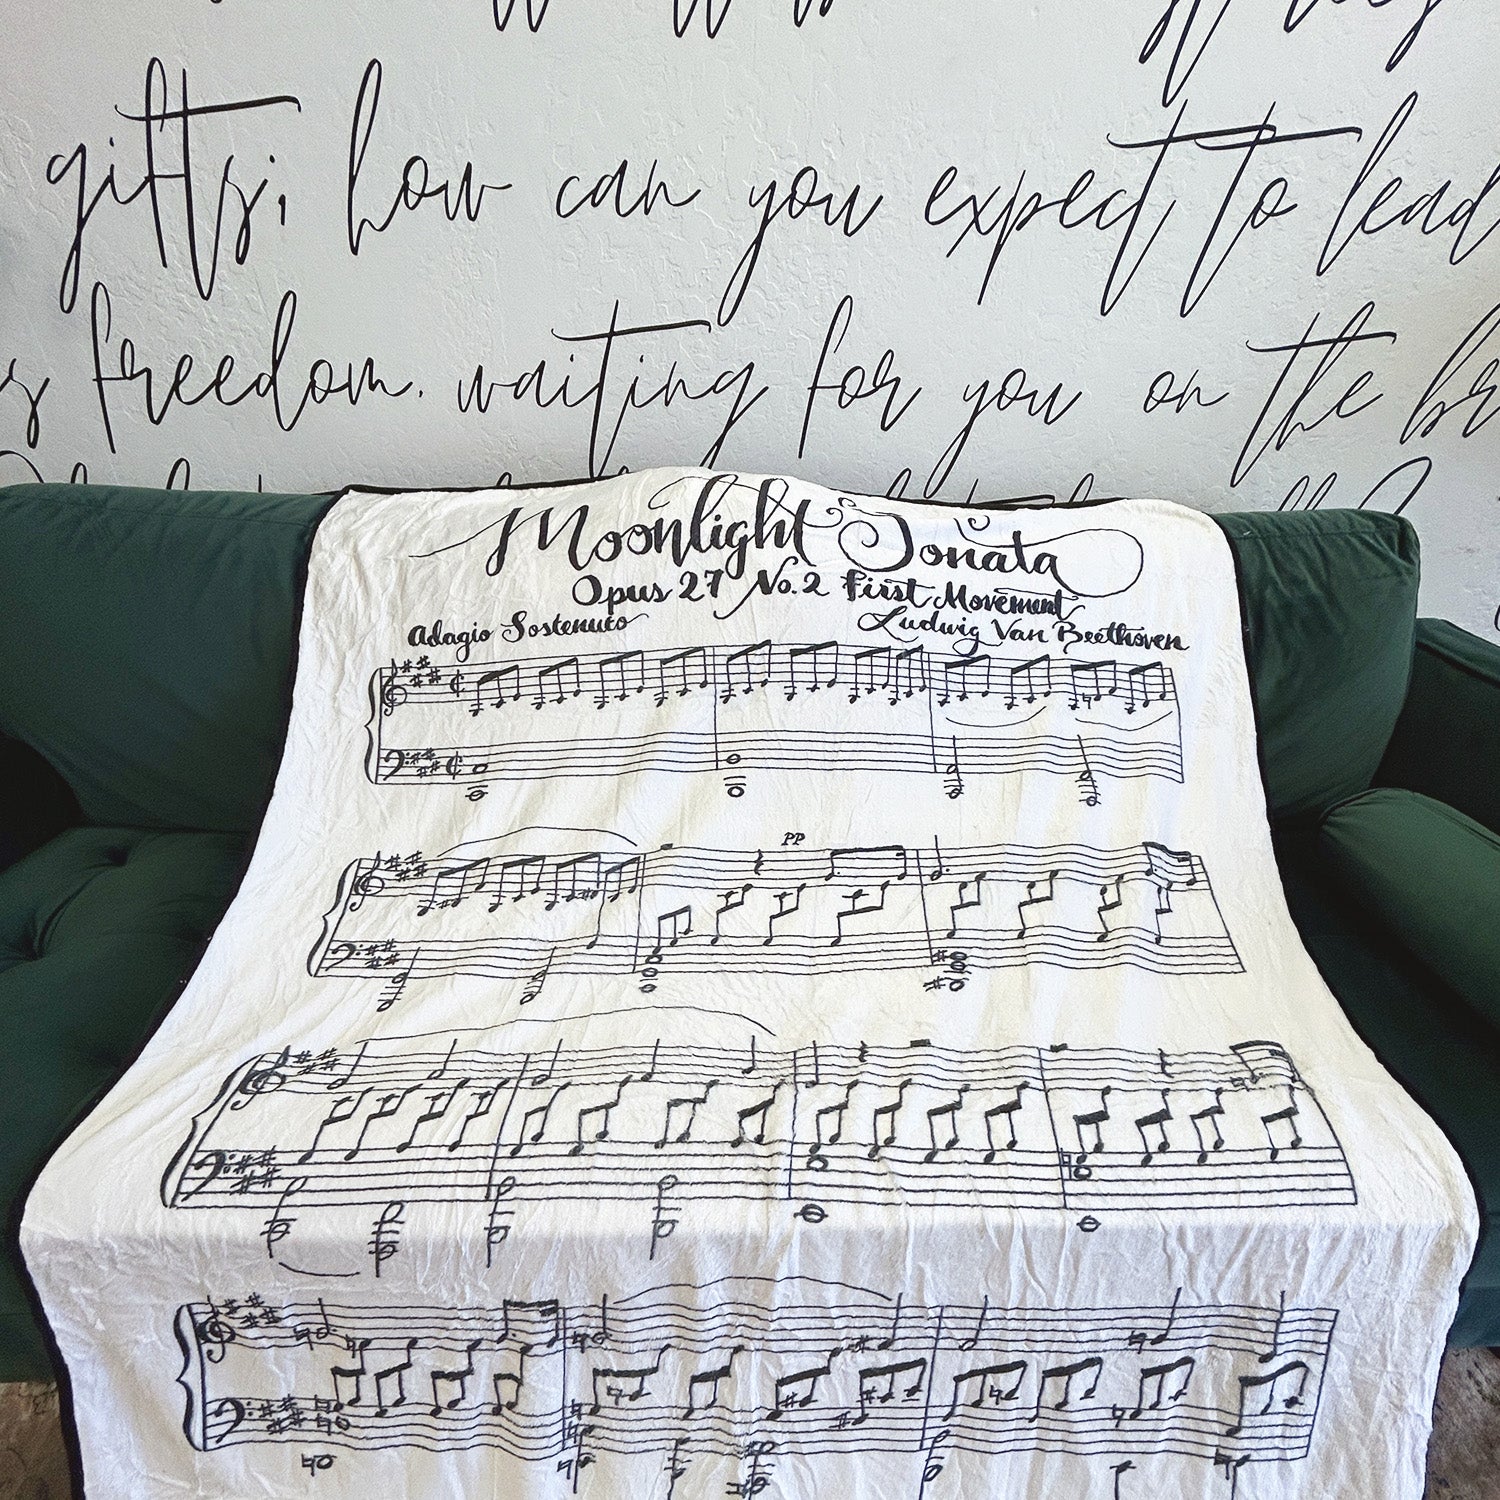 gifts; how can you expect to lead
freedom. waiting for you on the
Moonlight Sonata
Opus 27 No. 2 First Movement
Adagio Sostenuto
Ludwig Van Beethoven
PP